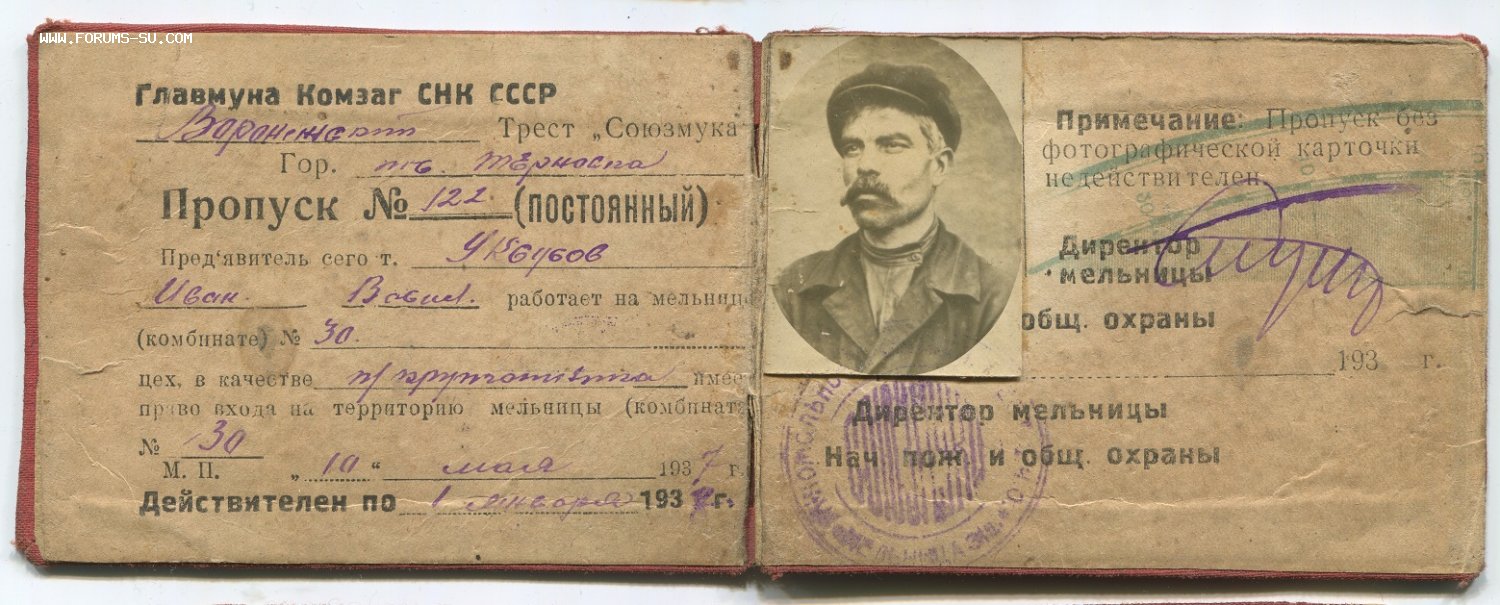 WWW.FORUMS-SU.COM
Главмука Комзаг СНК СССР
Воронежский Трест „Союзмука
Гор.
Пропуск № 122 (ПОСТОЯННЫЙ)
Пред'явитель сего т.
Иван Вавил. работает на мельниц
(комбинате) № 30
цех, в качестве имее
право входа на территорию мельницы (комбинат
№ 30
М. П. „ 10 “ мая 1937 г.
Действителен по 1 января 193 г.
Примечание: Пропуск без
фотографической карточки
недействителен.
Директор
мельницы
общ. охраны
193 г.
Директор мельницы
Нач. пож. и общ. охраны